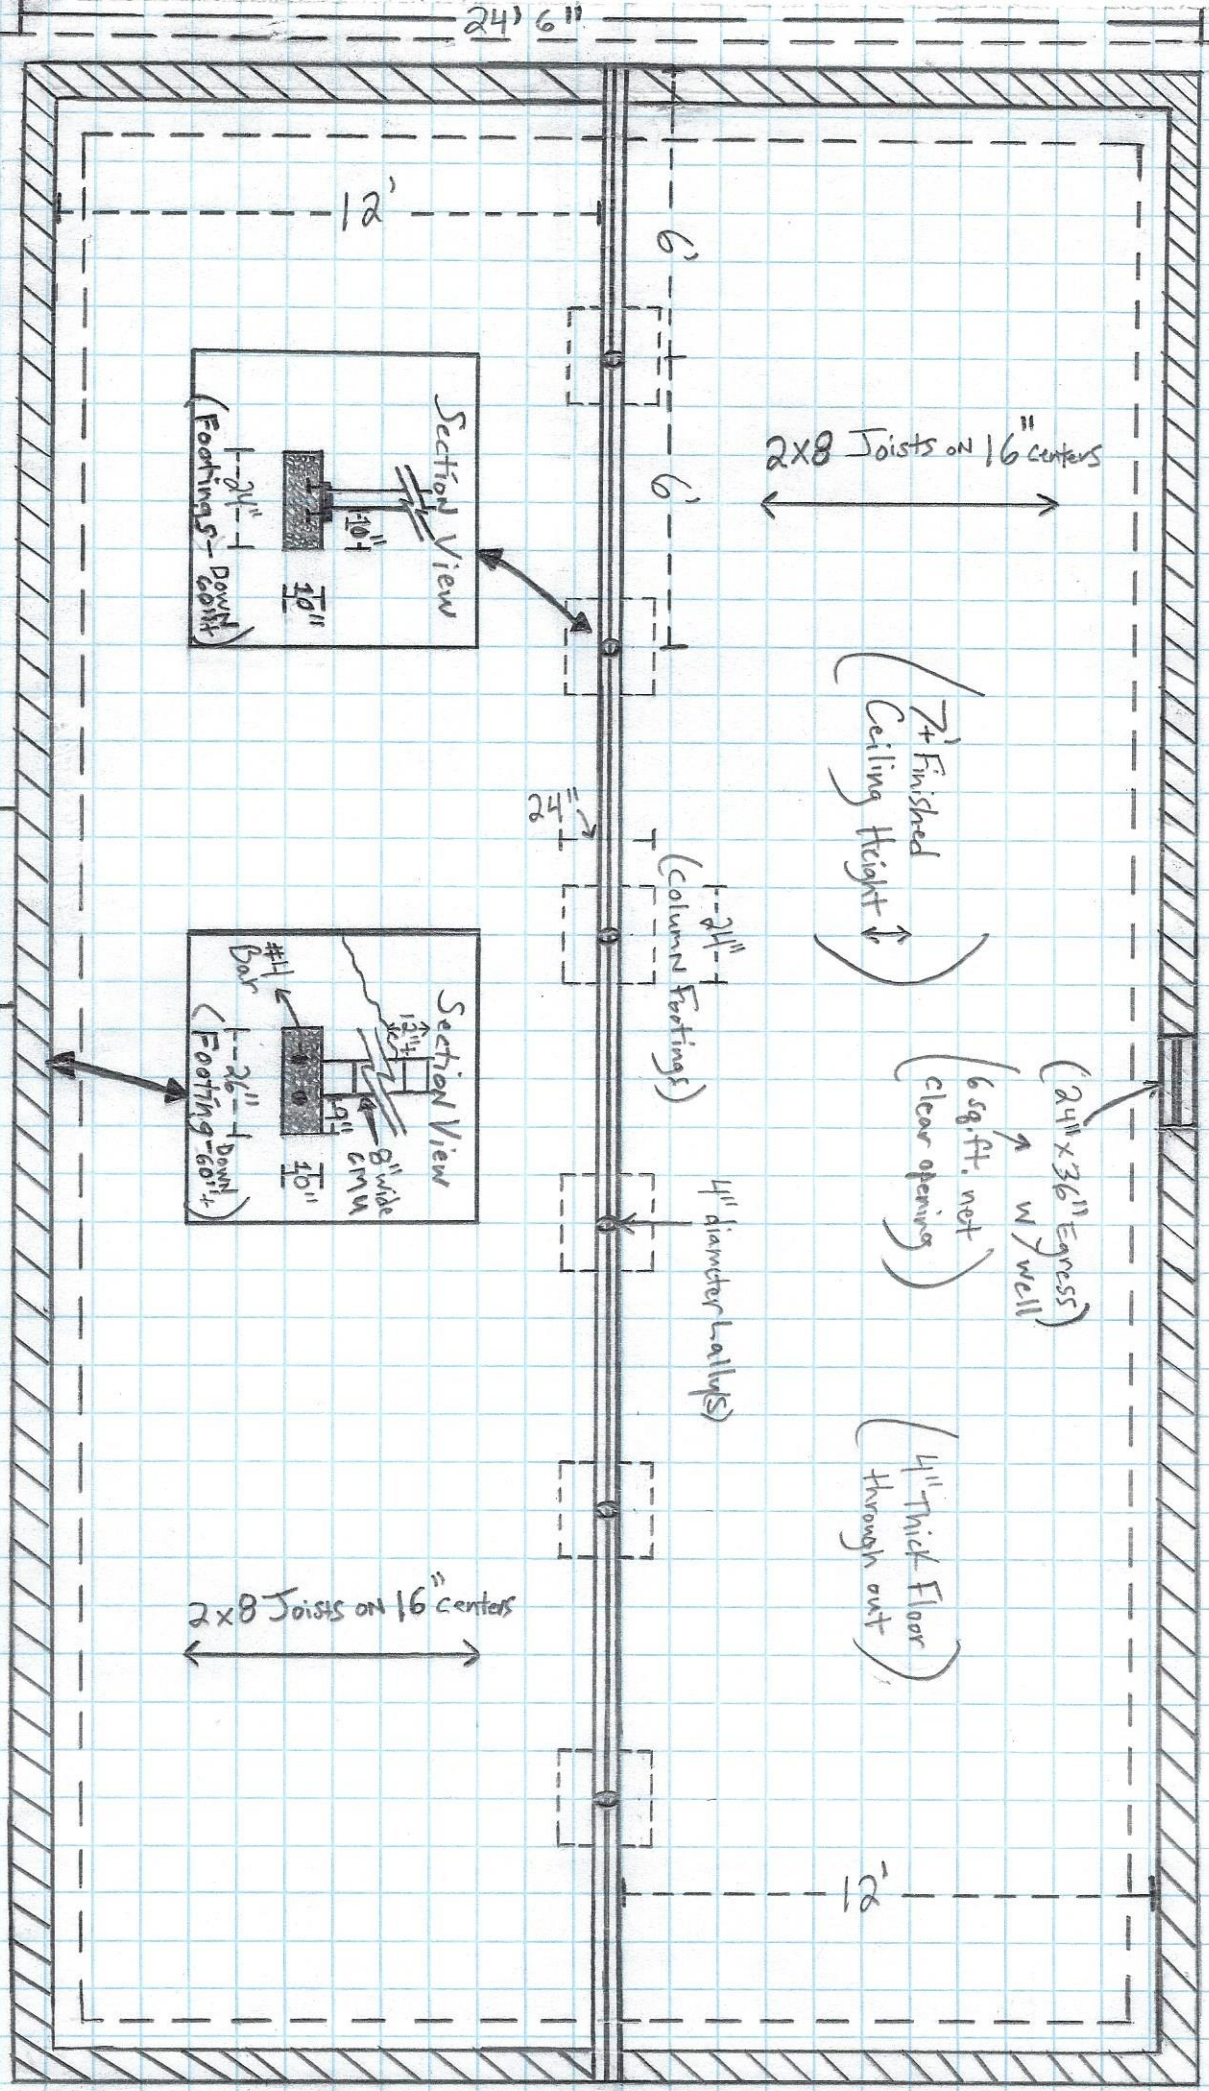 24' 6"
12'
6'
6'
2x8 Joists on 16" centers
Section View
10"
24"
10"
(Footings - Down
60"+)
7'+ Finished
Ceiling Height
24"
24"
(Column Footings)
(24" x 36" Egress)
w/ well
(6 sq.ft. net
clear opening)
Section View
12"+
8" wide
CMU
9"
#4
Bar
26"
10"
(Footing - Down
60"+)
4" diameter Lally(s)
(4" Thick Floor
through out)
2x8 Joists on 16" centers
12'